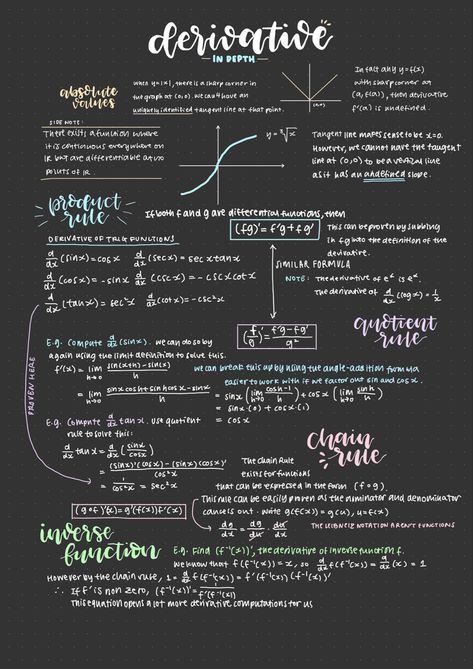 derivative
IN DEPTH
absolute values
when y=|x|, there is a sharp corner in
the graph at (0,0). we can't have an
uniquely identified tangent line at that point.
(0,0)
In fact any y=f(x)
with sharp corner at
(a, f(a)), then derivative
f'(a) is undefined.
SIDE NOTE:
There exists a function where
it is continuous everywhere on
IR but are differentiable at no
points of IR.
y = ³√x
Tangent line makes sense to be x=0.
However, we cannot have the tangent
line at (0,0) to be a vertical line
as it has an undefined slope.
product rule
If both f and g are differential functions, then
(fg)' = f'g + fg'
This can be proven by subbing
in f.g into the definition of the
derivative.
DERIVATIVE OF TRIG FUNCTIONS
d/dx (sinx) = cosx d/dx (secx) = secxtanx
d/dx (cosx) = -sinx d/dx (cscx) = -cscxcotx
d/dx (tanx) = sec²x d/dx (cotx) = -csc²x
SIMILAR FORMULA
NOTE: The derivative of eˣ is eˣ.
The derivative of d/dx (logx) = 1/x
(f/g)' = f'g-fg'/g²
quotient rule
PROVEN HERE
E.g. Compute d/dx (sinx). we can do so by
again using the limit definition to solve this.
f'(x) = lim h→0 sin(x+h)-sin(x)/h
= lim h→0 sinxcosh+sinhcosx-sinx/h
we can break this up by using the angle-addition formula
easier to work with if we factor out sin and cosx.
= sinx (lim h→0 cosh-1/h) + cosx (lim h→0 sinh/h)
= sinx·(0) + cosx·(1)
= cosx
E.g. Compute d/dx tanx. Use quotient
rule to solve this:
d/dx tanx = d/dx (sinx/cosx)
= (sinx)'(cosx)-(sinx)(cosx)'/cos²x
= 1/cos²x = sec²x
chain rule
The Chain Rule
exists for functions
that can be expressed in the form (f∘g).
(g∘f)'(x) = g'(f(x))f'(x)
This rule can be easily proven as the nominator and denominator
cancels out. Write g(f(x)) = g(u), u=f(x)
dg/dx = dg/du · du/dx
THE LEIBNIZ NOTATION ARENT FUNCTIONS
inverse function
E.g. Find (f⁻¹(x))', the derivative of inverse function f.
we know that f(f⁻¹(x)) = x, so d/dx f(f⁻¹(x)) = d/dx (x) = 1
However by the chain rule, 1 = d/dx f(f⁻¹(x)) = f'(f⁻¹(x))(f⁻¹(x))'
∴ If f' is non zero, (f⁻¹(x))' = 1/f'(f⁻¹(x))
This equation opens a lot more derivative computations for us